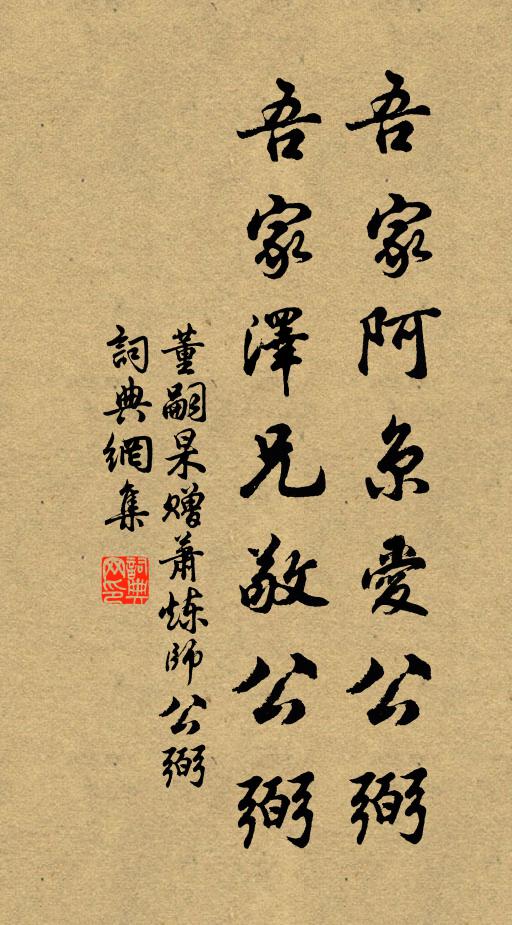 吾家阿京愛公弼
吾家澤兄敬公弼
董嗣杲贈蕭炼師公弼
詞典網集
詞典網印